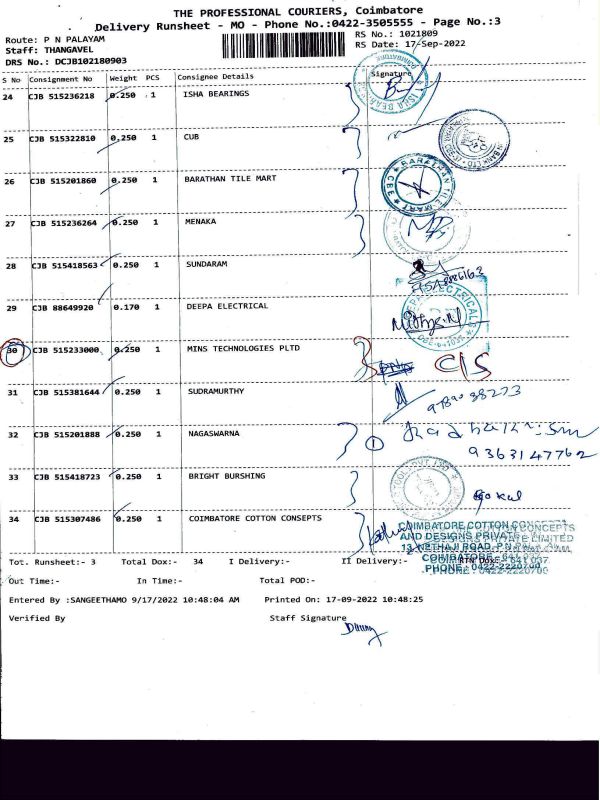 THE PROFESSIONAL COURIERS, Coimbatore
Delivery Runsheet - MO - Phone No.:0422-3505555 - Page No.:3
Route: P N PALAYAM RS No.: 1021809
Staff: THANGAVEL RS Date: 17-Sep-2022
DRS No.: DCJB102180903
S No Consignment No Weight PCS Consignee Details Signature
24 CJB 515236218 0.250 1 ISHA BEARINGS
25 CJB 515322810 0.250 1 CUB
26 CJB 515201860 0.250 1 BARATHAN TILE MART
BARATHAN TILE MART CBE
27 CJB 515236264 0.250 1 MENAKA
28 CJB 515418563 0.250 1 SUNDARAM
29 CJB 88649920 0.170 1 DEEPA ELECTRICAL
30 CJB 515233000 0.250 1 MINS TECHNOLOGIES PLTD C/S
31 CJB 515381644 0.250 1 SUDRAMURTHY
32 CJB 515201888 0.250 1 NAGASWARNA 1
9363147762
33 CJB 515418723 0.250 1 BRIGHT BURSHING
Gokul
34 CJB 515307486 0.250 1 COIMBATORE COTTON CONSEPTS
COIMBATORE COTTON CONCEPTS
AND DESIGNS PRIVATE LIMITED
COIMBATORE - 641 037.
PHONE : 0422-2220700
Tot. Runsheet:- 3 Total Dox:- 34 I Delivery:- II Delivery:- RTN DOX:-
Out Time:- In Time:- Total POD:-
Entered By :SANGEETHAMO 9/17/2022 10:48:04 AM Printed On: 17-09-2022 10:48:25
Verified By Staff Signature